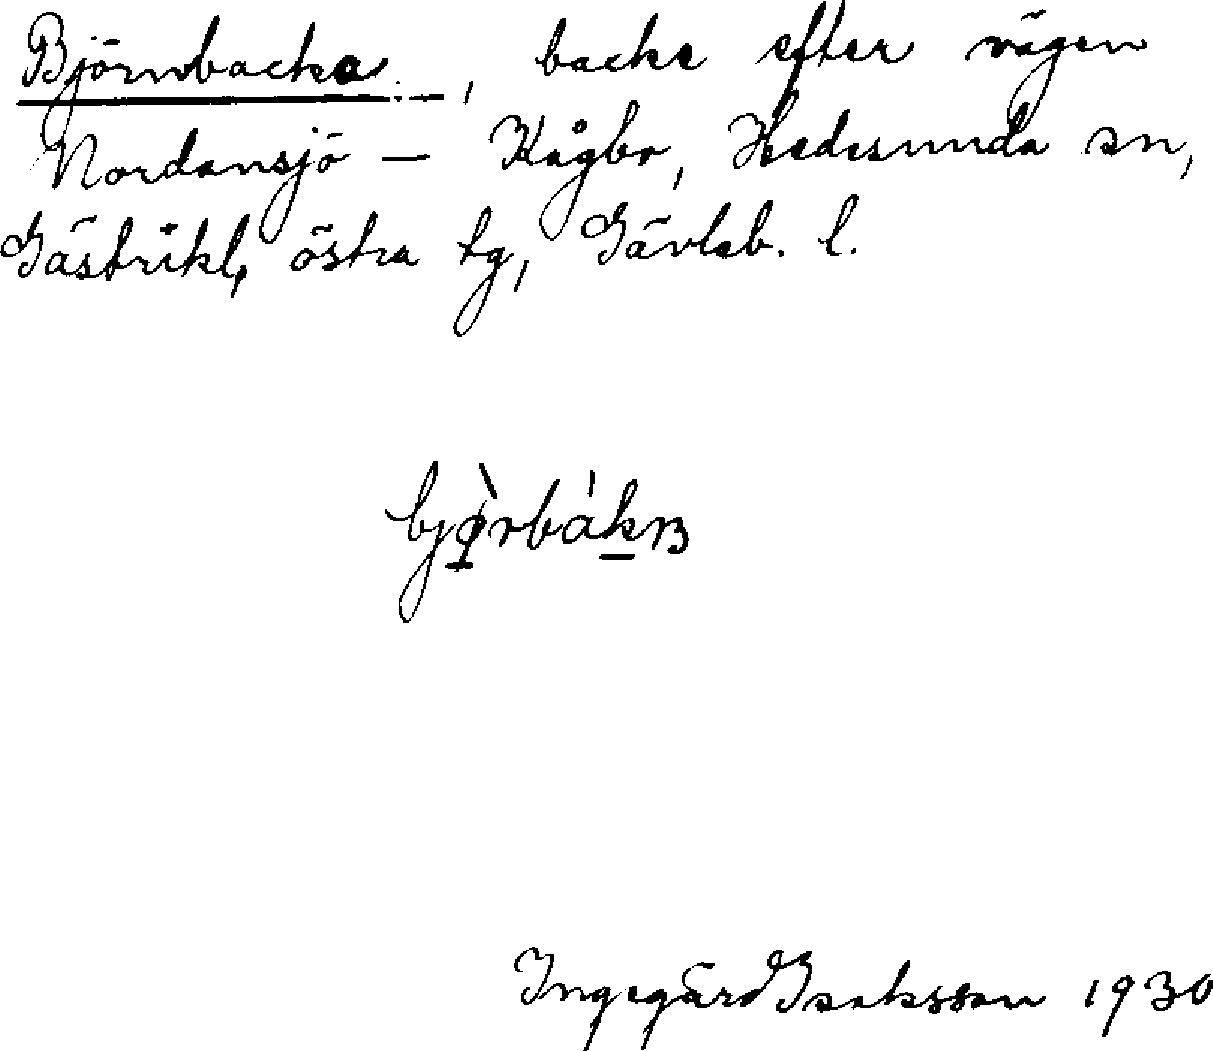 Björnbacka, backe efter vägen
Nordansjö – Kågbo, Hedesunda sn,
Gästrikl, östra tg, Gävleb. l.
Ingegärd Isaksson 1930